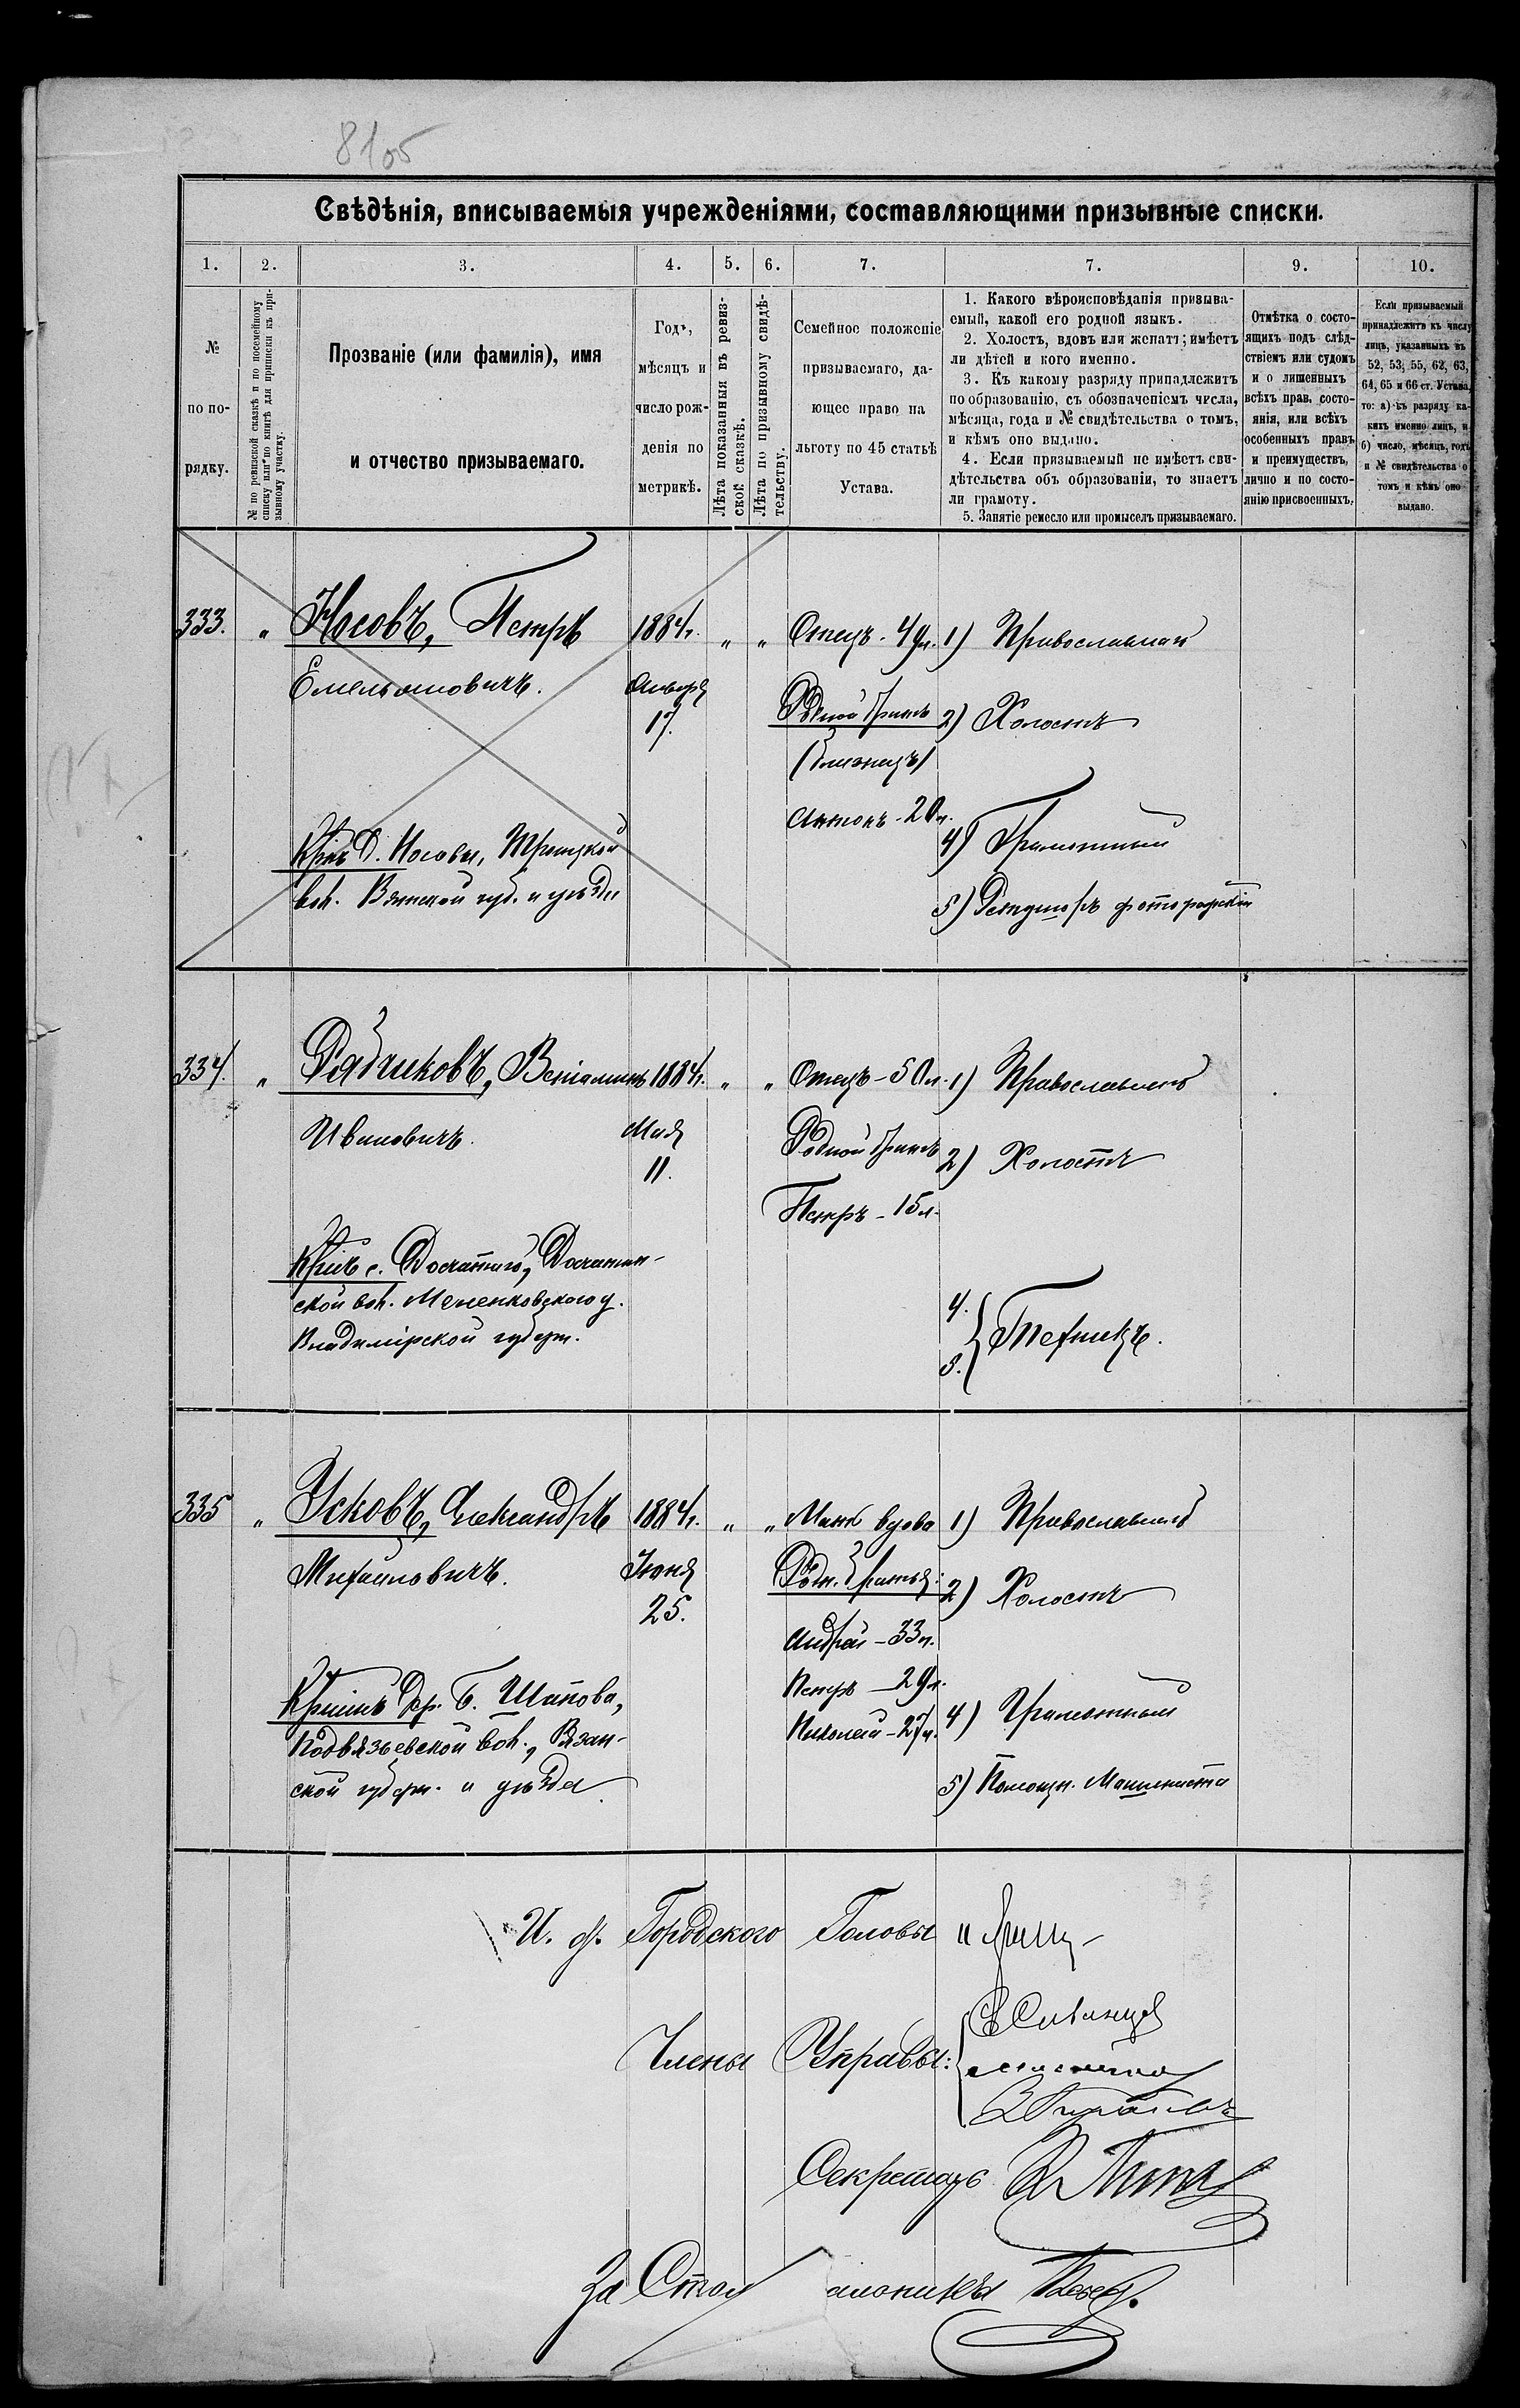 8105
Свѣдѣнія, вписываемыя учрежденіями, составляющими призывные списки.
1. 2. 3. 4. 5. 6. 7. 7. 9. 10.
№
по по-
рядку.
№ по ревизской сказкѣ и по посемейному
списку или по книгѣ для приписки къ при-
зывному участку.
Прозваніе (или фамилія), имя
и отчество призываемаго.
Годъ,
мѣсяцъ и
число рож-
денія по
метрикѣ.
Лѣта показанныя въ ревиз-
ской сказкѣ.
Лѣта по призывному свидѣ-
тельству.
Семейное положеніе
призываемаго, да-
ющее право на
льготу по 45 статьѣ
Устава.
1. Какого вѣроисповѣданія призыва-
емый, какой его родной языкъ.
2. Холостъ, вдовъ или женатъ; имѣетъ
ли дѣтей и кого именно.
3. Къ какому разряду принадлежитъ
по образованію, съ обозначеніемъ числа,
мѣсяца, года и № свидѣтельства о томъ,
и кѣмъ оно выдано.
4. Если призываемый не имѣетъ сви-
дѣтельства объ образованіи, то знаетъ
ли грамоту.
5. Занятіе ремесло или промыселъ призываемаго.
Отмѣтка о состо-
ящихъ подъ слѣд-
ствіемъ или судомъ
и о лишенныхъ
всѣхъ прав. состо-
янія, или всѣхъ
особенныхъ правъ
и преимуществъ,
лично и по состо-
янію присвоенныхъ.
Если призываемый
принадлежитъ къ числу
лицъ, указанныхъ въ
52, 53, 55, 62, 63,
64, 65 и 66 ст. Устава,
то: а) къ разряду ка-
кихъ именно лицъ, и
б) число, мѣсяцъ, годъ
и № свидѣтельства о
томъ и кѣмъ оно
выдано.
333. " Носовъ, Петръ 1884г. " " Отецъ - 49л. 1) Православный
Емельяновичъ. Января
17.
Родной братъ 2) Холостъ
(близнецъ)
Антонъ - 20л.
Крнъ д. Носовы, Троицкой
вол. Вятской губ. и уѣзда
4) Грамотный
5) Ретушоръ фотографскій
334. " Рабчиковъ, Веніаминъ 1884г. " " Отецъ - 50л. 1) Православный
Ивановичъ. Мая
11.
Родной братъ 2) Холостъ
Петръ - 15л.
Крнъ с. Досчатаго, Досчатин-
ской вол. Меленковскаго у.
Владимірской губерн.
4.
5. Техникъ.
335 " Усковъ, Александръ 1884г. " " Мать вдова 1) Православный
Михайловичъ. Іюня
25.
Родн. братья: 2) Холостъ
Андрей - 33л.
Петръ - 29л.
Николай - 27л.
Крнинъ дер. Б. Шапова,
Подвязьевской вол., Рязан-
ской губерн. и уѣзда
4) Грамотный
5) Помощн. Машиниста
И. д. Городского Головы
Члены Управы:
Секретарь
За Столоначальника